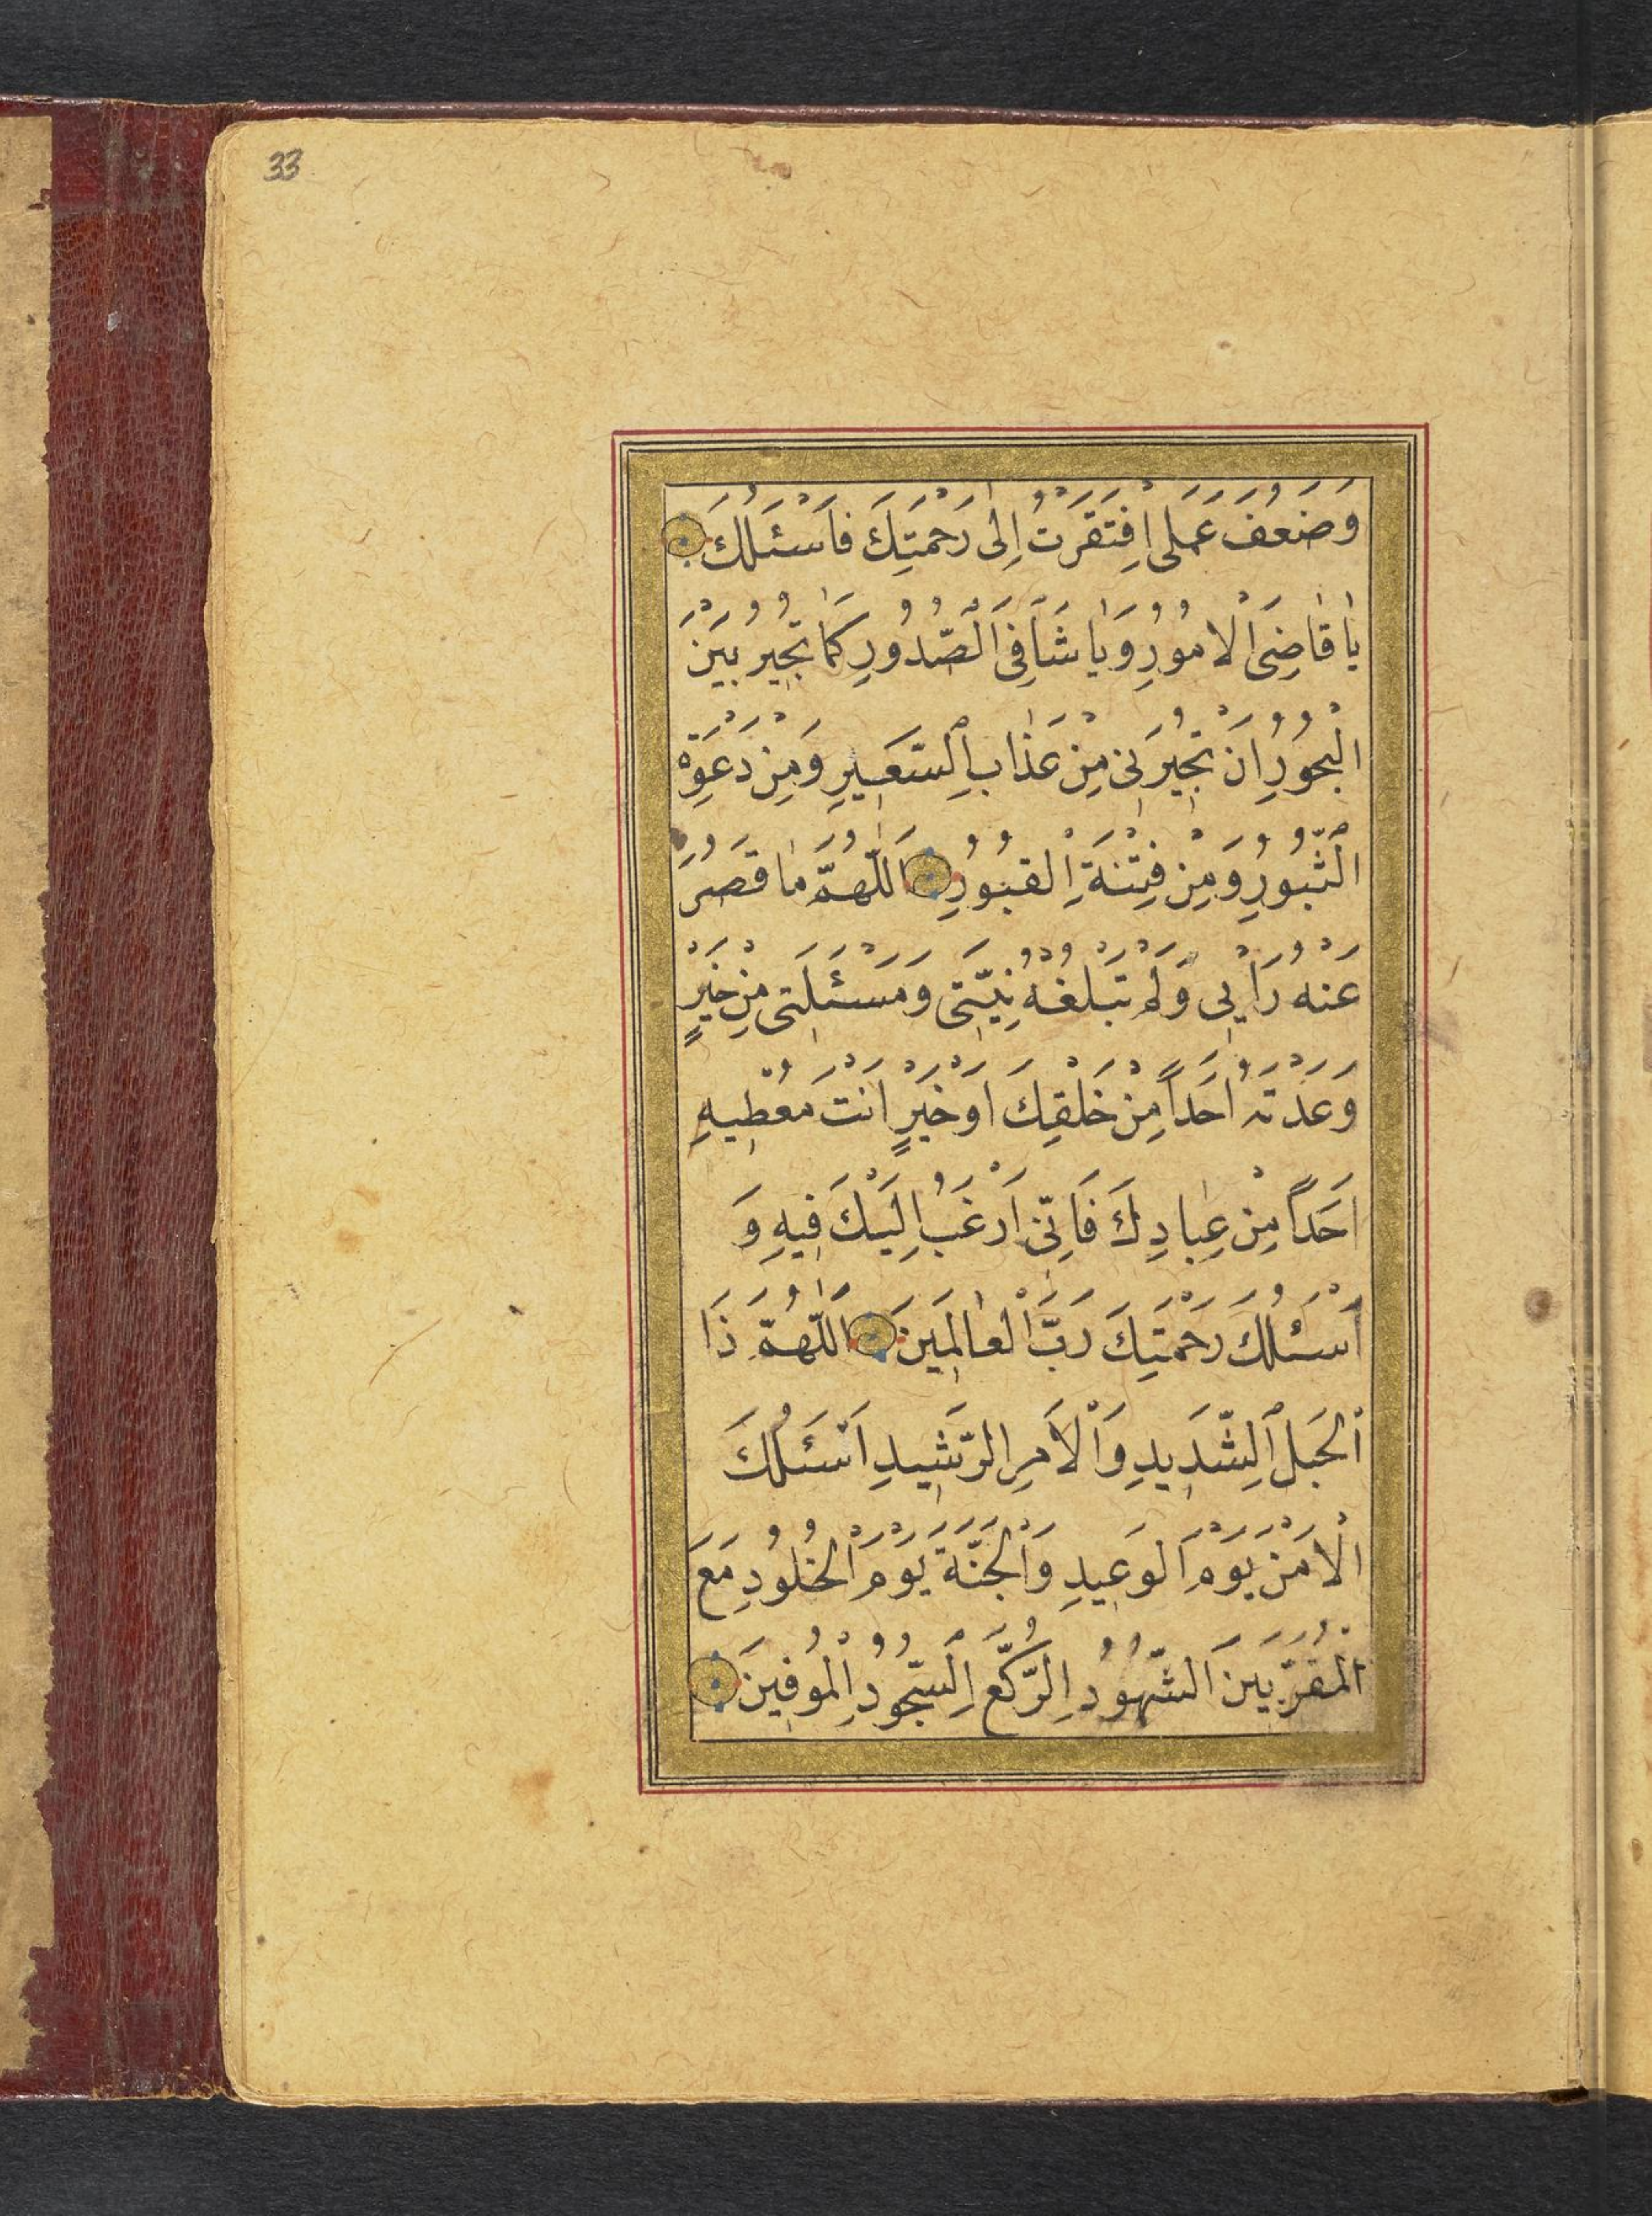 33
وَضَعُفَ عَمَلِى اِفْتَقَرْتُ اِلٰى رَحْمَتِكَ فَاَسْئَلُكَ
يٰا قٰاضِىَ الْاُمُورِ وَيٰا شَافِىَ الصُّدُورِ كَمٰا تُجِيرُ بَيْنَ
الْبُحُورِ اَنْ تُجِيرَنِى مِنْ عَذٰابِ السَّعِيرِ وَمِنْ دَعْوَةِ
الثُّبُورِ وَمِنْ فِتْنَةِ الْقُبُورِ اَللّٰهُمَّ مٰا قَصُرَ
عَنْهُ رَاْيِى وَلَمْ تَبْلُغْهُ نِيَّتِى وَمَسْئَلَتِى مِنْ خَيْرٍ
وَعَدْتَهُ اَحَداً مِنْ خَلْقِكَ اَوْ خَيْرٍ اَنْتَ مُعْطِيهِ
اَحَداً مِنْ عِبٰادِكَ فَاِنِّى اَرْغَبُ اِلَيْكَ فِيهِ وَ
اَسْئَلُكَ رَحْمَتِكَ رَبَّ الْعٰالَمِينَ اَللّٰهُمَّ ذَا
الْحَبْلِ الشَّدِيدِ وَالْاَمْرِ الرَّشِيدِ اَسْئَلُكَ
الْاَمْنَ يَوْمَ الْوَعِيدِ وَالْجَنَّةَ يَوْمَ الْخُلُودِ مَعَ
الْمُقَرَّبِينَ الشُّهُودِ الرُّكَّعِ السُّجُودِ الْمُوفِينَ